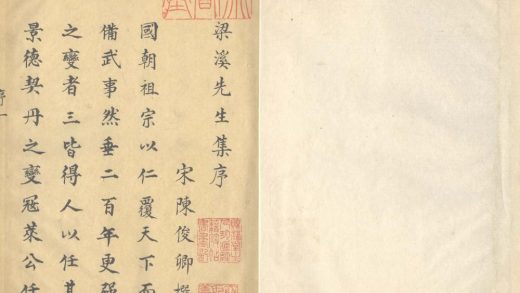 梁溪先生集序
宋陳俊卿撰
國朝祖宗以仁覆天下而
備武事然垂二百年更強
之變者三皆得人以任其
景德契丹之變冠萊公任
序一